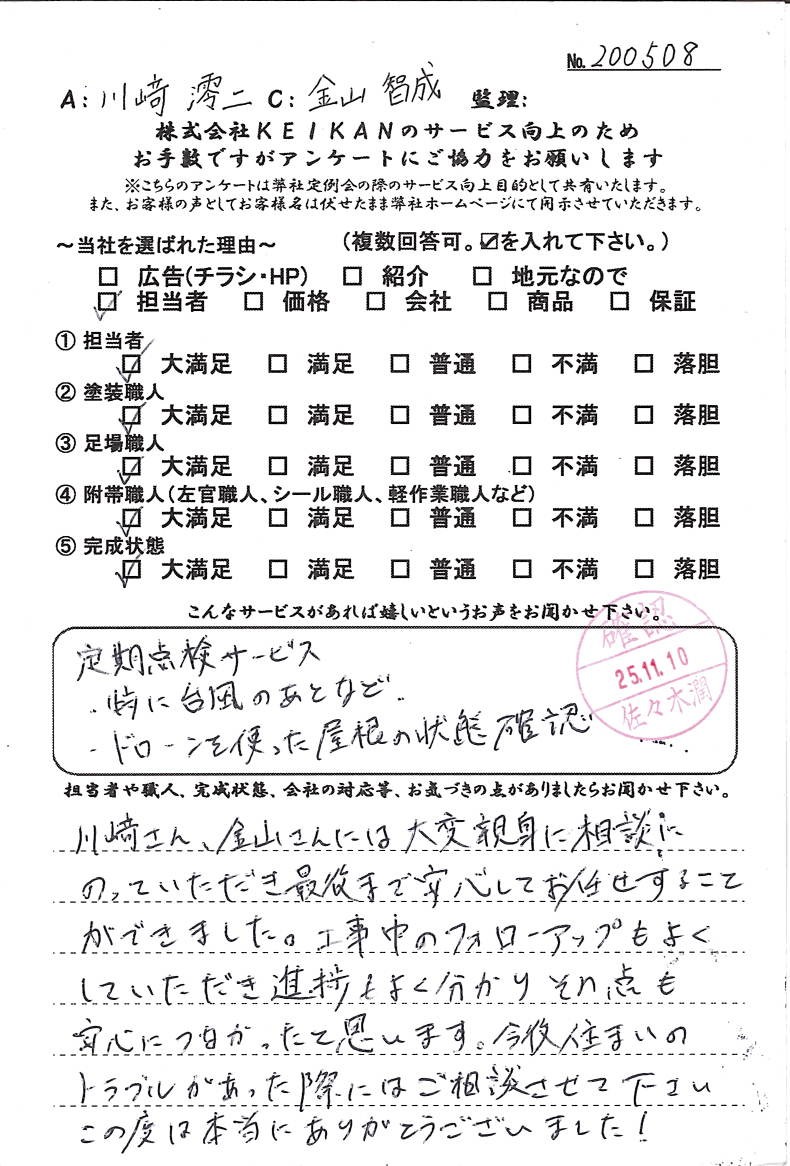 No. 200508
A: 川﨑 澪二 C: 金山 智成 監理:
株式会社KEIKANのサービス向上のため
お手数ですがアンケートにご協力をお願いします
※こちらのアンケートは弊社定例会の際のサービス向上目的として共有いたします。
また、お客様の声としてお客様名は伏せたまま弊社ホームページにて開示させていただきます。
～当社を選ばれた理由～ （複数回答可。☑を入れて下さい。）
□ 広告(チラシ・HP) □ 紹介 □ 地元なので
☑ 担当者 □ 価格 □ 会社 □ 商品 □ 保証
① 担当者
☑ 大満足 □ 満足 □ 普通 □ 不満 □ 落胆
② 塗装職人
☑ 大満足 □ 満足 □ 普通 □ 不満 □ 落胆
③ 足場職人
☑ 大満足 □ 満足 □ 普通 □ 不満 □ 落胆
④ 附帯職人(左官職人、シール職人、軽作業職人など)
☑ 大満足 □ 満足 □ 普通 □ 不満 □ 落胆
⑤ 完成状態
☑ 大満足 □ 満足 □ 普通 □ 不満 □ 落胆
こんなサービスがあれば嬉しいというお声をお聞かせ下さい。
定期点検サービス
・特に台風のあとなど
・ドローンを使った屋根の状態確認
確認
25.11.10
佐々木潤
担当者や職人、完成状態、会社の対応等、お気づきの点がありましたらお聞かせ下さい。
川﨑さん、金山さんには大変親身に相談に
のっていただき最後まで安心してお任せすること
ができました。工事中のフォローアップもよく
していただき進捗もよく分かりその点も
安心につながったと思います。今後住まいの
トラブルがあった際にはご相談させて下さい
この度は本当にありがとうございました！